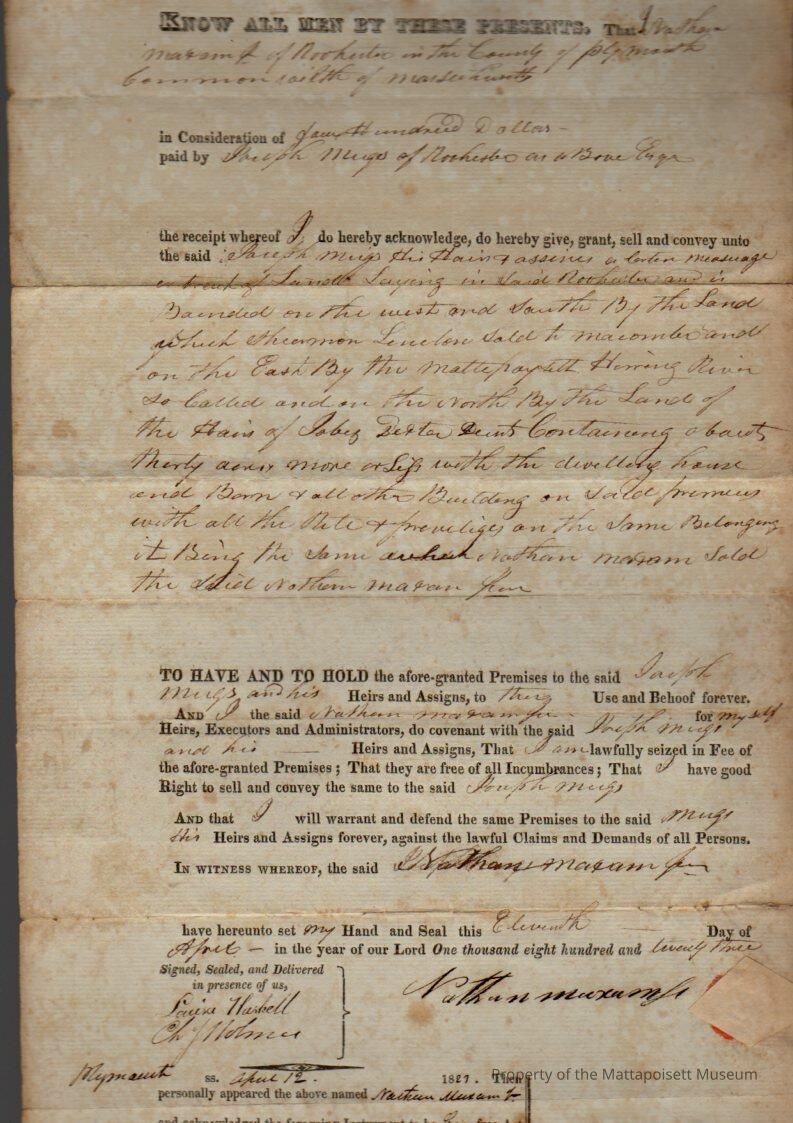 KNOW ALL MEN BY THESE PRESENTS, That I Nathan
of Rochester in the County of plymouth
Common wilth of Massachusetts
in Consideration of Hundred Dollars
paid by Joseph Meigs of Rochester as a Bove Esqr
the receipt whereof I do hereby acknowledge, do hereby give, grant, sell and convey unto
the said Joseph Meigs His Hairs & assigns a
of Land Laying in Said Rochester and is
Bounded on the west and South By the Land
which Sold to macomber and
on the East By the Herring River
So Called and on the North By the Land of
the Hairs of Jabez Dexter Containing about
thirty acres more or Less with the dwelling house
and Barn & all other Building on Said premises
with all the Rite & priveliges on the Same Belonging
it Being the Same Nathan maxam Sold
the Said Nathan maxam Jun
TO HAVE AND TO HOLD the afore-granted Premises to the said Joseph
Meigs and his Heirs and Assigns, to Use and Behoof forever.
AND I the said Nathan maxam Jun for my self
Heirs, Executors and Administrators, do covenant with the said Joseph meigs
and his Heirs and Assigns, That I am lawfully seized in Fee of
the afore-granted Premises; That they are free of all Incumbrances; That I have good
Right to sell and convey the same to the said Joseph meigs
AND that I will warrant and defend the same Premises to the said meigs
His Heirs and Assigns forever, against the lawful Claims and Demands of all Persons.
IN WITNESS WHEREOF, the said I Nathan maxam Jun
have hereunto set my Hand and Seal this Eleventh Day of
April in the year of our Lord One thousand eight hundred and twenty
Signed, Sealed, and Delivered
in presence of us,
Nathan maxam Jr
Haskell
Ch J Holmes
Plymouth ss. April 12. 182 Then
personally appeared the above named Nathan Maxam Jr
and acknowledged the foregoing Instrument to be
Property of the Mattapoisett Museum